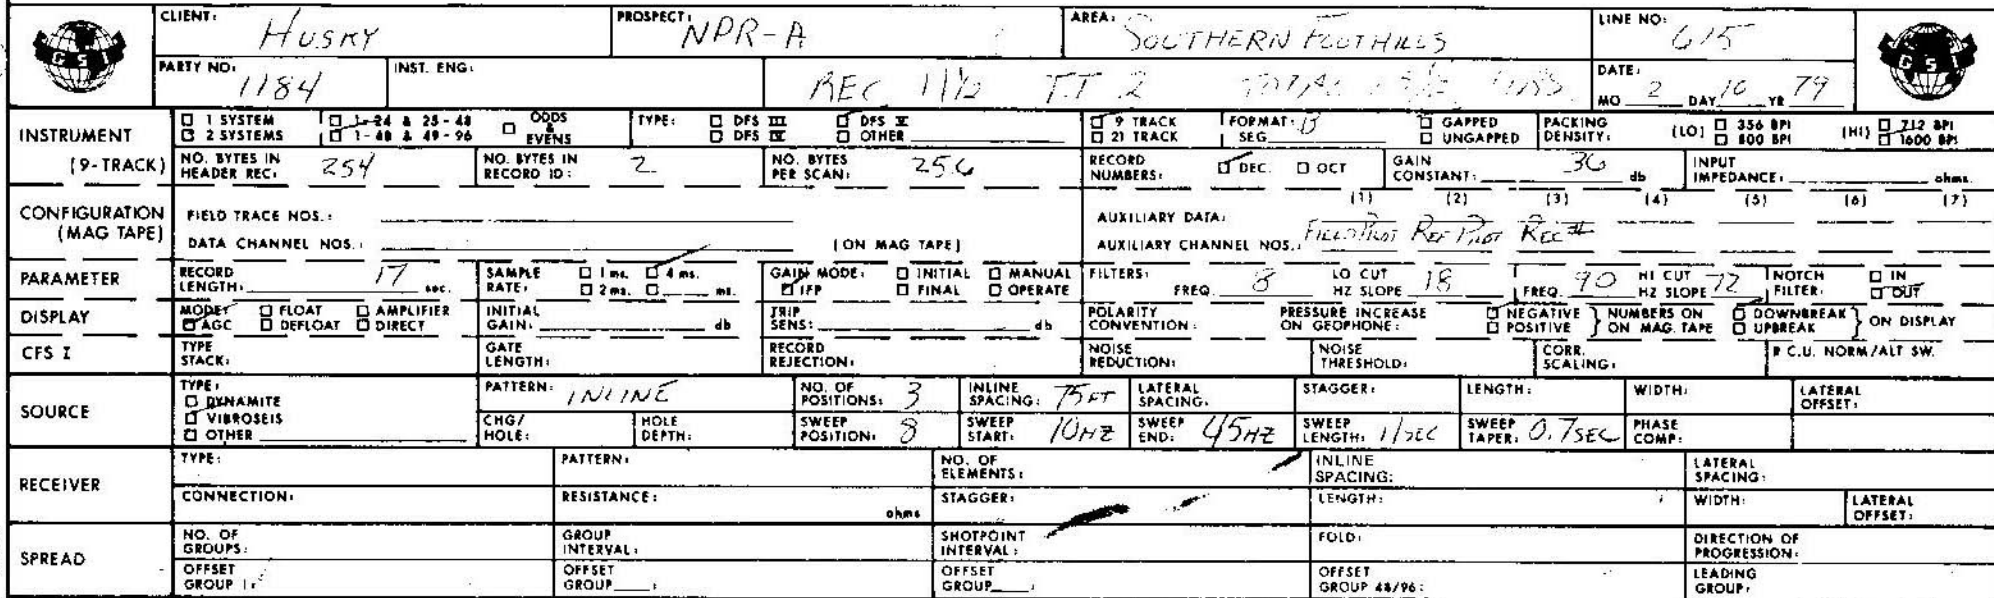 CLIENT: HUSKY PROSPECT: NPR-A AREA: SOUTHERN FOOTHILLS LINE NO: 615
GSI
GSI
PARTY NO: 1184 INST. ENG: REC 11 1/2 TT 2 DATE: MO 2 DAY 10 YR 79
INSTRUMENT (9-TRACK)
☐ 1 SYSTEM ☐ 1-24 & 25-48 ☐ ODDS & EVENS TYPE: ☐ DFS III ☐ DFS V ☐ 9 TRACK FORMAT: B ☐ GAPPED PACKING DENSITY: (LO) ☐ 356 BPI (HI) ☐ 712 BPI
☐ 2 SYSTEMS ☐ 1-48 & 49-96 ☐ DFS IV ☐ OTHER ☐ 21 TRACK SEG ☐ UNGAPPED ☐ 800 BPI ☐ 1600 BPI
NO. BYTES IN HEADER REC: 254 NO. BYTES IN RECORD ID: 2 NO. BYTES PER SCAN: 256 RECORD NUMBERS: ☐ DEC. ☐ OCT GAIN CONSTANT: 36 db INPUT IMPEDANCE: ohms.
CONFIGURATION (MAG TAPE)
FIELD TRACE NOS.: AUXILIARY DATA: (1) (2) (3) (4) (5) (6) (7)
DATA CHANNEL NOS.: (ON MAG TAPE) AUXILIARY CHANNEL NOS.: FIELD PILOT REF PILOT REC #
PARAMETER RECORD LENGTH: 17 sec. SAMPLE RATE: ☐ 1 ms. ☐ 4 ms. ☐ 2 ms. ☐ ms. GAIN MODE: ☐ INITIAL ☐ MANUAL ☐ IFP ☐ FINAL ☐ OPERATE FILTERS: FREQ. 8 LO CUT HZ SLOPE 18 FREQ. 90 HI CUT HZ SLOPE 72 NOTCH FILTER: ☐ IN ☐ OUT
DISPLAY MODE: ☐ FLOAT ☐ AMPLIFIER ☐ AGC ☐ DEFLOAT ☐ DIRECT INITIAL GAIN: db TRIP SENS: db POLARITY CONVENTION: PRESSURE INCREASE ON GEOPHONE: ☐ NEGATIVE ☐ POSITIVE } NUMBERS ON ON MAG. TAPE ☐ DOWNBREAK ☐ UPBREAK } ON DISPLAY
CFS I TYPE STACK: GATE LENGTH: RECORD REJECTION: NOISE REDUCTION: NOISE THRESHOLD: CORR. SCALING: R.C.U. NORM/ALT SW.
SOURCE
TYPE: ☐ DYNAMITE ☐ VIBROSEIS ☐ OTHER PATTERN: INLINE NO. OF POSITIONS: 3 INLINE SPACING: 75 FT LATERAL SPACING: STAGGER: LENGTH: WIDTH: LATERAL OFFSET:
CHG/HOLE: HOLE DEPTH: SWEEP POSITION: 8 SWEEP START: 10 HZ SWEEP END: 45 HZ SWEEP LENGTH: 11 SEC SWEEP TAPER: 0.7 SEC PHASE COMP:
RECEIVER
TYPE: PATTERN: NO. OF ELEMENTS: INLINE SPACING: LATERAL SPACING:
CONNECTION: RESISTANCE: ohms STAGGER: LENGTH: WIDTH: LATERAL OFFSET:
SPREAD
NO. OF GROUPS: GROUP INTERVAL: SHOTPOINT INTERVAL: FOLD: DIRECTION OF PROGRESSION:
OFFSET GROUP 1: OFFSET GROUP : OFFSET GROUP : OFFSET GROUP 48/96: LEADING GROUP: